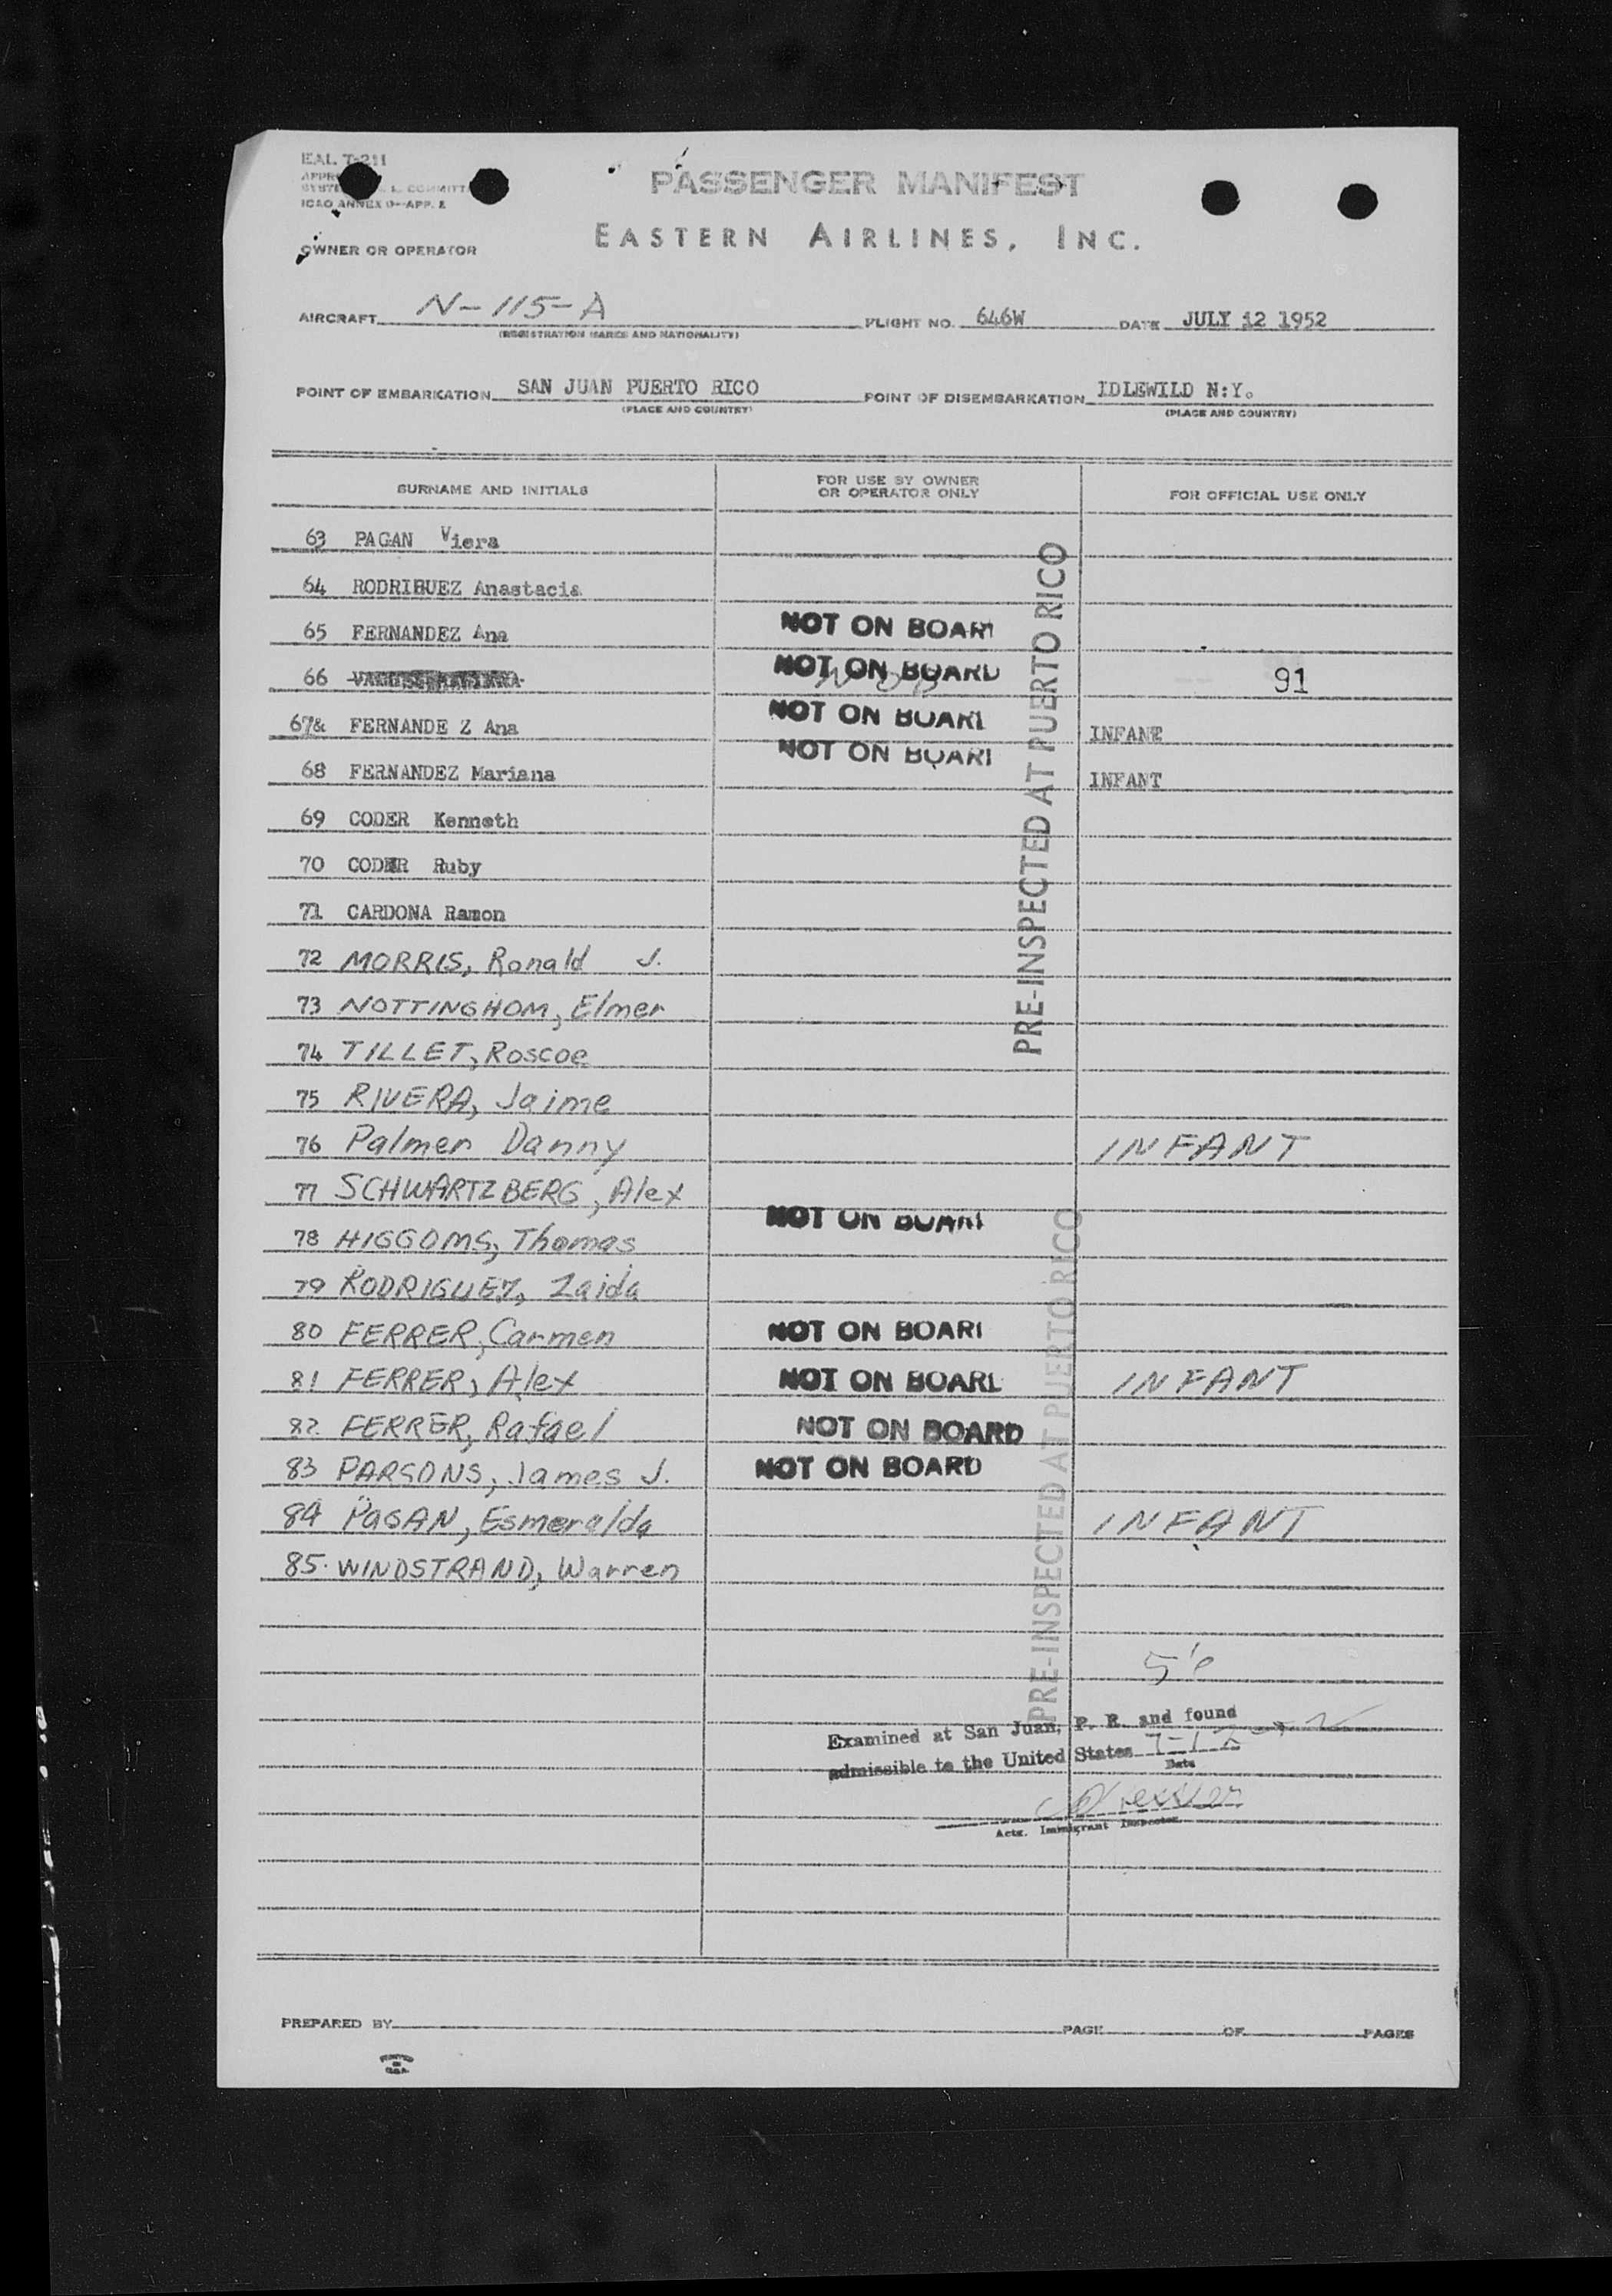 EAL T-211
PASSENGER MANIFEST
ICAO ANNEX 9-APP. 2
EASTERN AIRLINES, INC.
OWNER OR OPERATOR
AIRCRAFT N-115-A FLIGHT NO. 646W DATE JULY 12 1952
(REGISTRATION MARKS AND NATIONALITY)
POINT OF EMBARKATION SAN JUAN PUERTO RICO POINT OF DISEMBARKATION IDLEWILD N:Y.
(PLACE AND COUNTRY) (PLACE AND COUNTRY)
SURNAME AND INITIALS FOR USE BY OWNER OR OPERATOR ONLY FOR OFFICIAL USE ONLY
63 PAGAN Viera
64 RODRIBUEZ Anastacia
65 FERNANDEZ Ana NOT ON BOARD
66 NOT ON BOARD 91
67& FERNANDE Z Ana NOT ON BOARD INFANT
68 FERNANDEZ Mariana NOT ON BOARD INFANT
69 CODER Kenneth
70 CODER Ruby
71 CARDONA Ramon
PRE-INSPECTED AT PUERTO RICO
72 MORRIS, Ronald J.
73 NOTTINGHOM, Elmer
74 TILLET, Roscoe
75 RIVERA, Jaime
76 Palmer Danny INFANT
77 SCHWARTZBERG, Alex
78 HIGGOMS, Thomas NOT ON BOARD
79 RODRIGUEZ, Zaida
80 FERRER, Carmen NOT ON BOARD
81 FERRER, Alex NOT ON BOARD INFANT
82 FERRER, Rafael NOT ON BOARD
83 PARSONS, James J. NOT ON BOARD
84 PAGAN, Esmeralda INFANT
85. WINDSTRAND, Warren
PRE-INSPECTED AT PUERTO RICO
Examined at San Juan, P. R. and found
admissible to the United States 7-12-52
Date
Actg. Immigrant Inspector
PREPARED BY PAGE OF PAGES
PRINTED IN U.S.A.